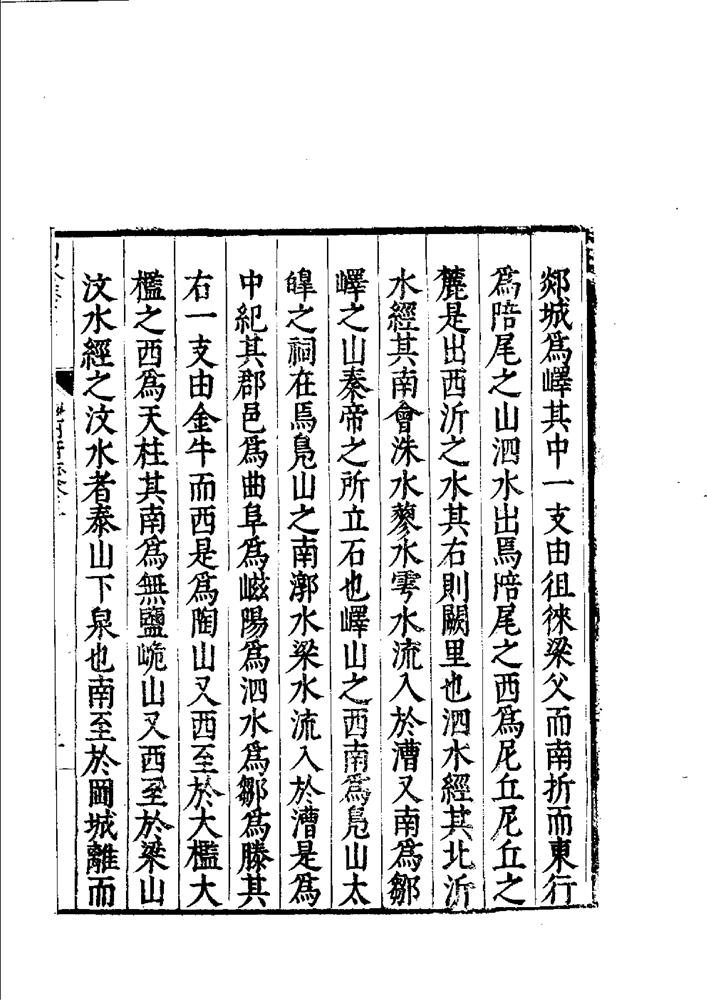 郯城爲嶧其中一支由徂徠梁父而南折而東行
爲陪尾之山泗水出焉陪尾之西爲尼丘尼丘之
麓是出西沂之水其右則闕里也泗水經其北沂
水經其南會洙水蓼水雩水流入於漕又南爲鄒
嶧之山秦帝之所立石也嶧山之西南爲鳧山太
皥之祠在焉鳧山之南漷水梁水流入於漕是爲
中紀其郡邑爲曲阜爲嵫陽爲泗水爲鄒爲滕其
右一支由金牛而西是爲陶山又西至於大檻大
檻之西爲天柱其南爲無鹽峗山又西至於梁山
汶水經之汶水者泰山下泉也南至於岡城離而